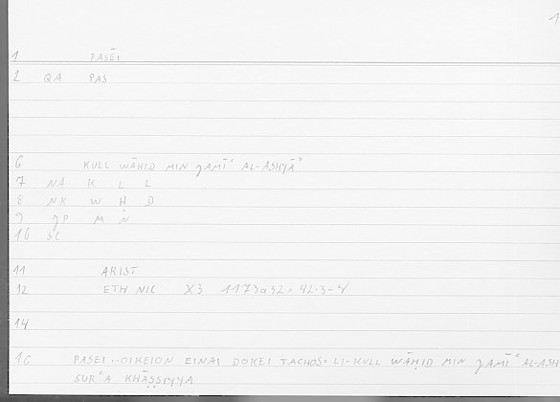 1
1 PASĒI
2 QA PAS
6 KULL WĀḤID MIN ǦAMĪʿ AL-ASHYĀʾ
7 NA K L L
8 NX W Ḥ D
9 JP M N
10 SC
11 ARIST
12 ETH NIC X3 1173a32 = 42.3-4
14
16 PASEI ..OIKEION EINAI DOKEI TACHOS = LI-KULL WĀḤID MIN ǦAMĪʿ AL-ASH
SURʿA KHĀṢṢIYYA